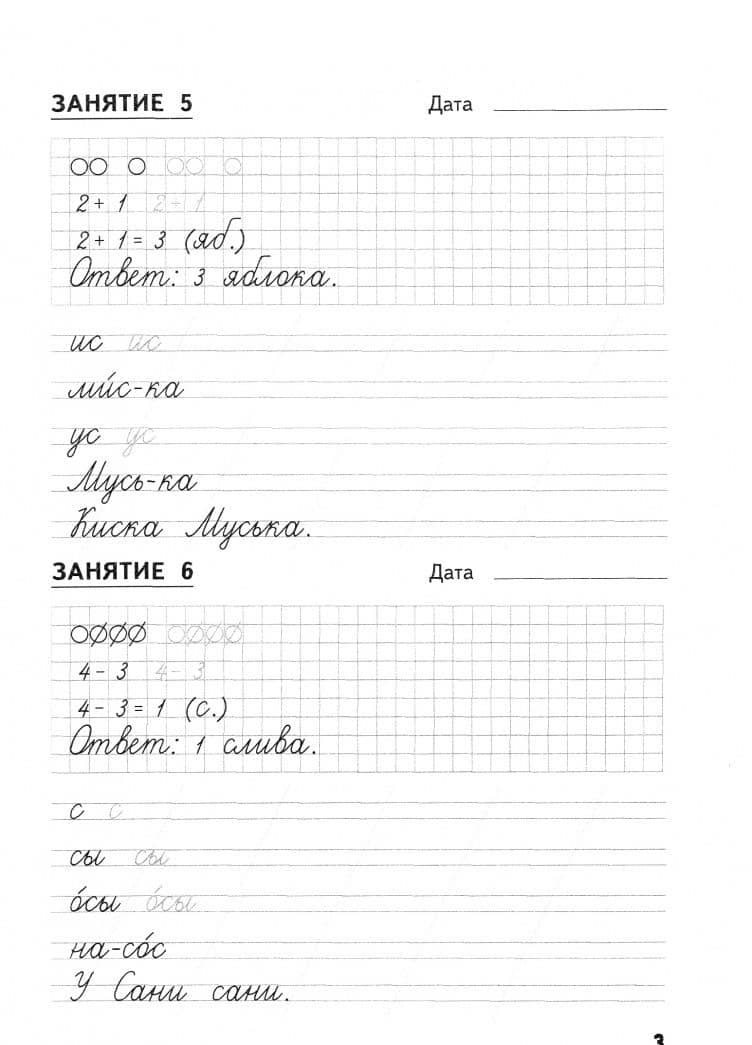 ЗАНЯТИЕ 5 Дата
2 + 1 2 + 1
2 + 1 = 3 (яб.)
Ответ: 3 яблока.
ис ис
ми́с-ка
ус ус
Мусь-ка
Киска Муська.
ЗАНЯТИЕ 6 Дата
4 - 3 4 - 3
4 - 3 = 1 (с.)
Ответ: 1 слива.
с с
сы сы
о́сы о́сы
на-со́с
У Сани сани.
3